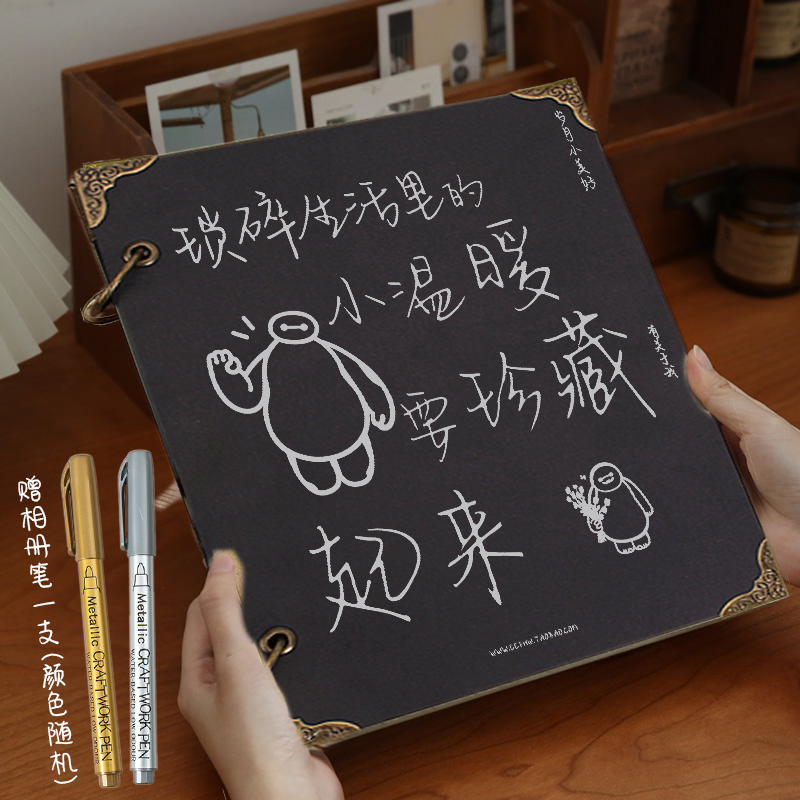 岁月小美好
琐碎生活里的
小温暖
要珍藏
起来
有关于我
WWW.CCTHW.TAOBAO.COM
赠相册笔一支(颜色随机)
Metallic CRAFTWORK PEN
WATER-BASED LOW ODOUR
Metallic CRAFTWORK PEN
WATER-BASED LOW ODOUR